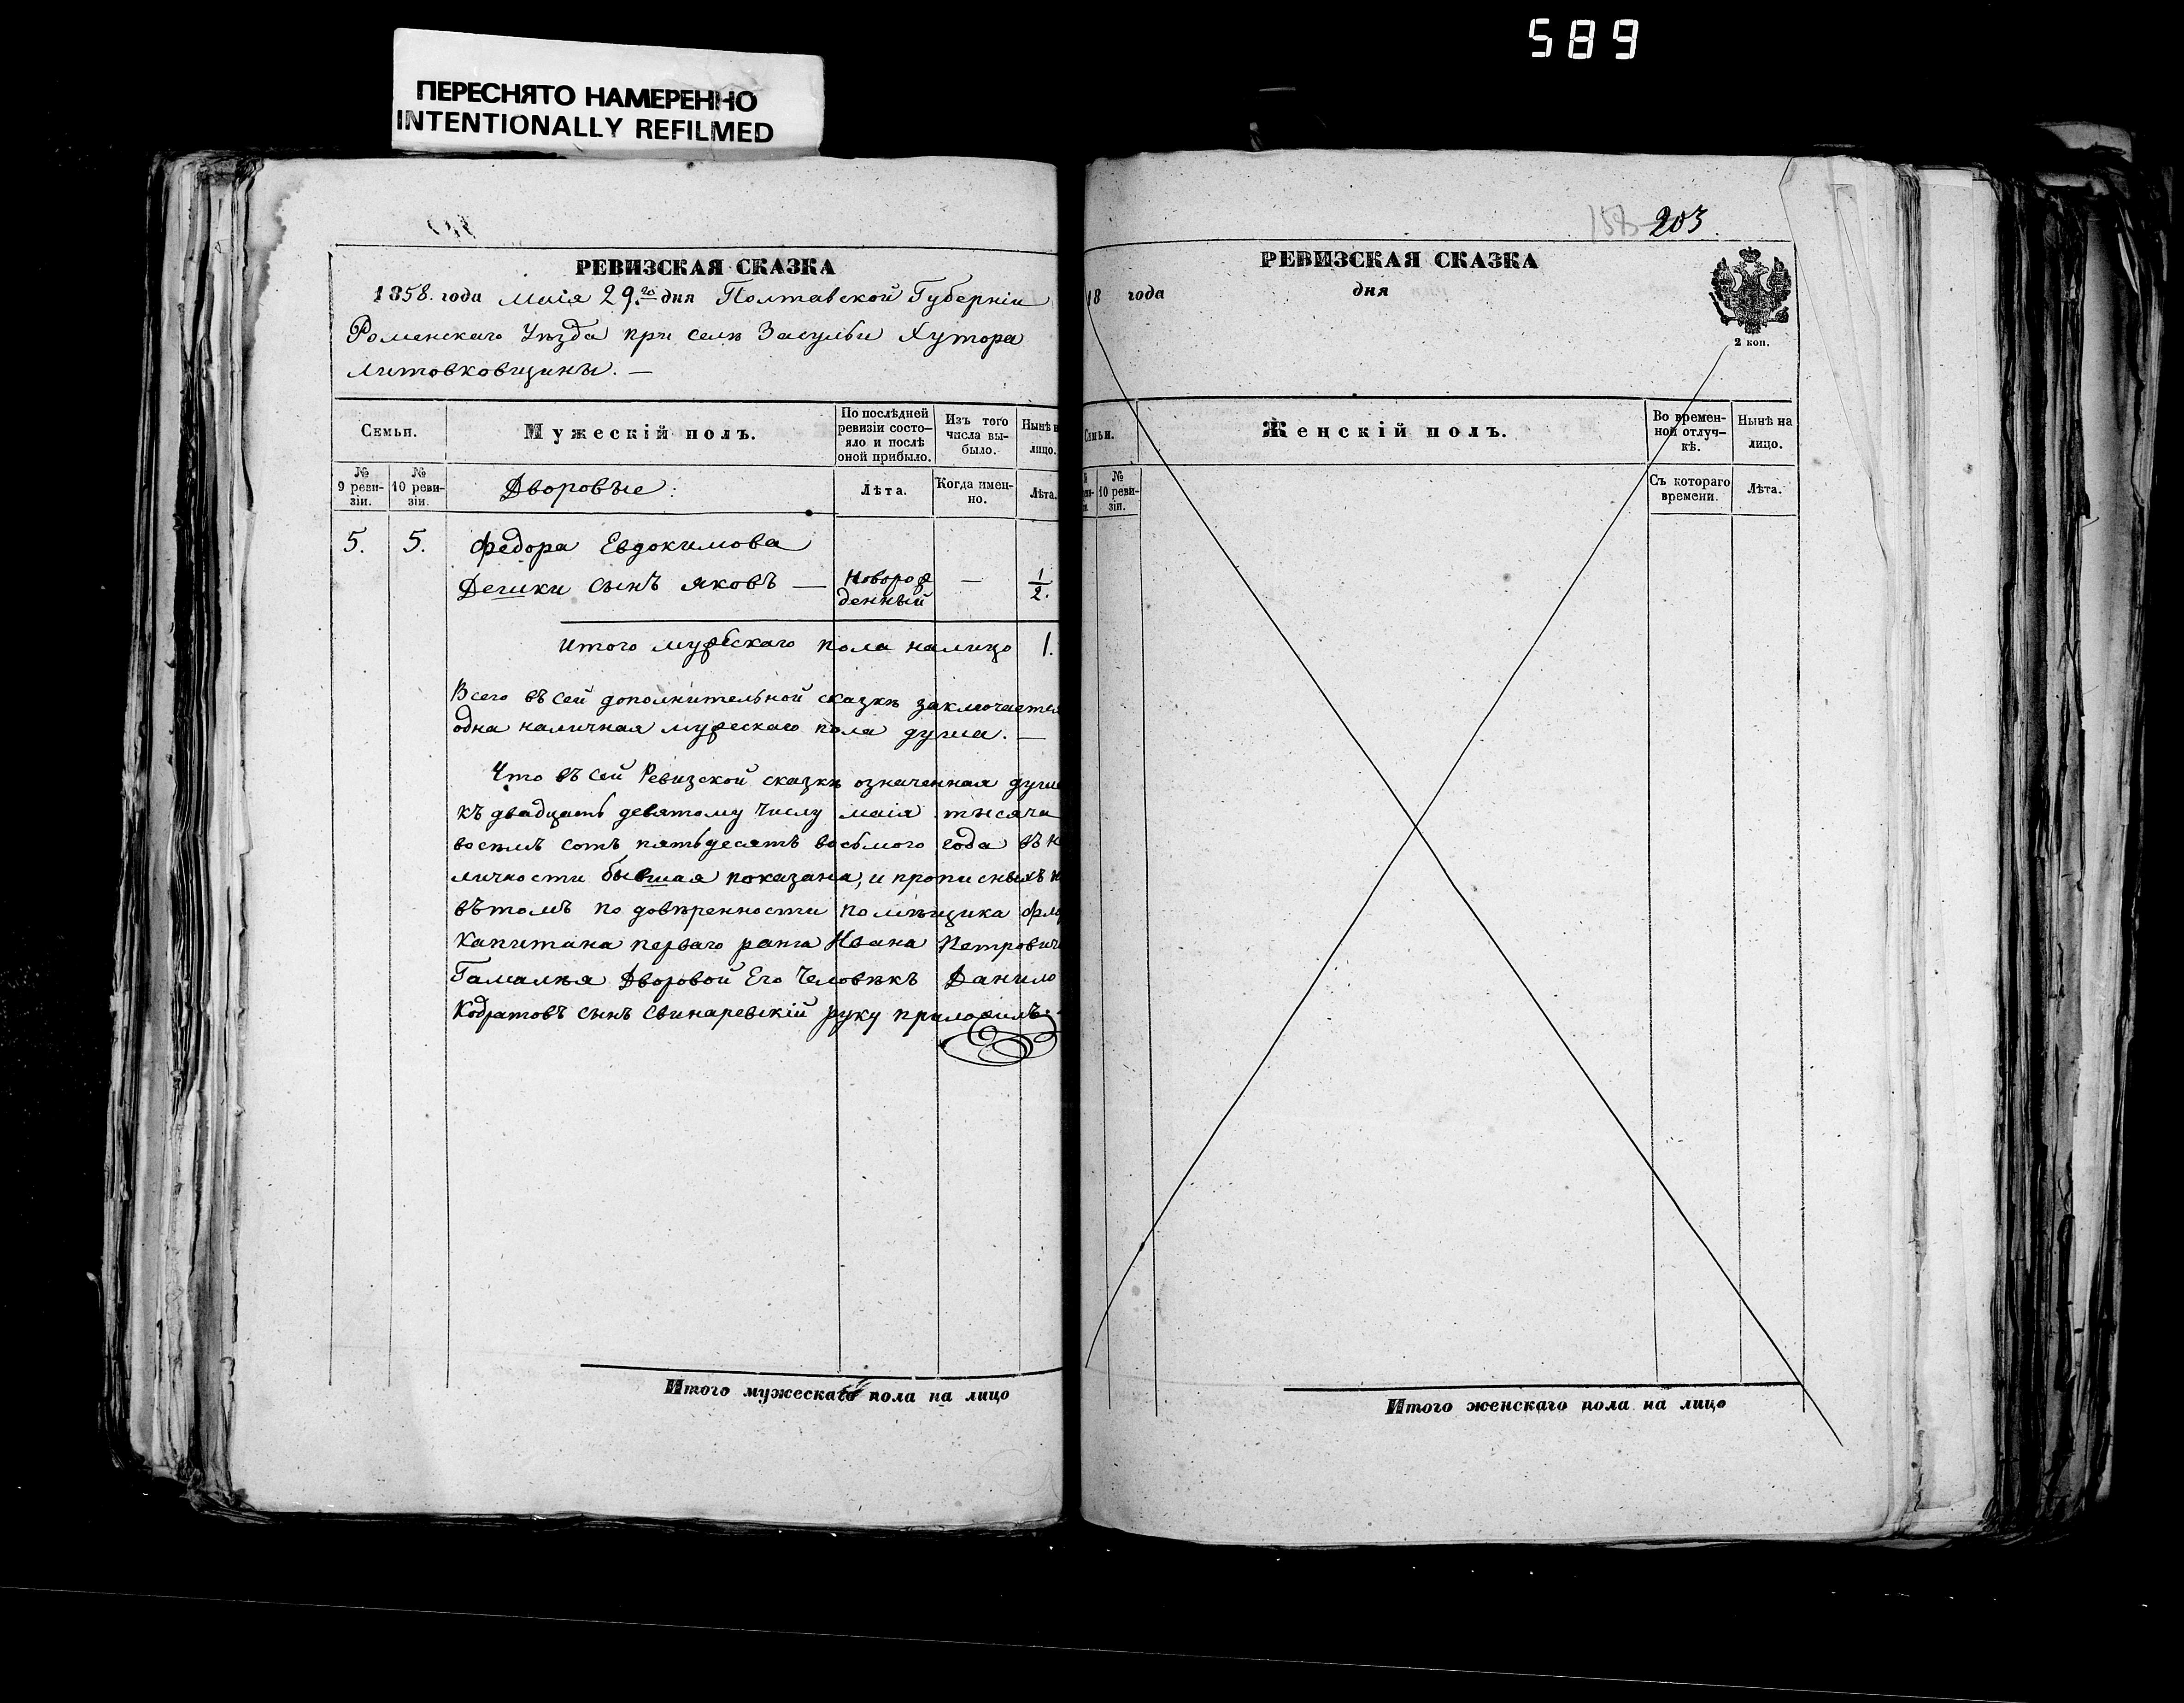 589
ПЕРЕСНЯТО НАМЕРЕННО
INTENTIONALLY REFILMED
РЕВИЗСКАЯ СКАЗКА
1858. года Маія 29.го дня Полтавской Губерніи
Роменскаго Уѣзда при селѣ Засульи Хутора
Литовковщины. —
Семьи.
Мужескій полъ.
По послѣдней ревизіи состояло и послѣ оной прибыло.
Изъ того числа выбыло.
Нынѣ н
лицо.
№ 9 ревизіи.
№ 10 ревизіи.
Дворовые:
Лѣта.
Когда именно.
Лѣта.
5. 5. Федора Евдокимова
Дешки сынъ Яковъ — Новорож — 1/2.
денный
Итого мужескаго пола налицо 1.
Всего въ сей дополнительной сказкѣ заключается
одна наличная мужескаго пола душа. —
Что въ сей Ревизской сказкѣ означенная душа
къ двадцать девятому числу маія тысяча
восемъ сотъ пятьдесятъ восьмого года въ н
личности бывшая показана, и прописныхъ н
въ томъ по довѣренности помѣщика фло
Капитана перваго ранга Ивана Петровича
Гамалѣя Дворовой Его Человѣкъ Данило
Кодратовъ сынъ Свинаревскій руку приложилъ.
Итого мужескаго пола на лицо
158 203.
РЕВИЗСКАЯ СКАЗКА
18 года дня
2 коп.
Семьи.
Женскій полъ.
Во временной отлучкѣ.
Нынѣ на лицо.
№ 10 ревизіи.
Съ котораго времени.
Лѣта.
Итого женскаго пола на лицо